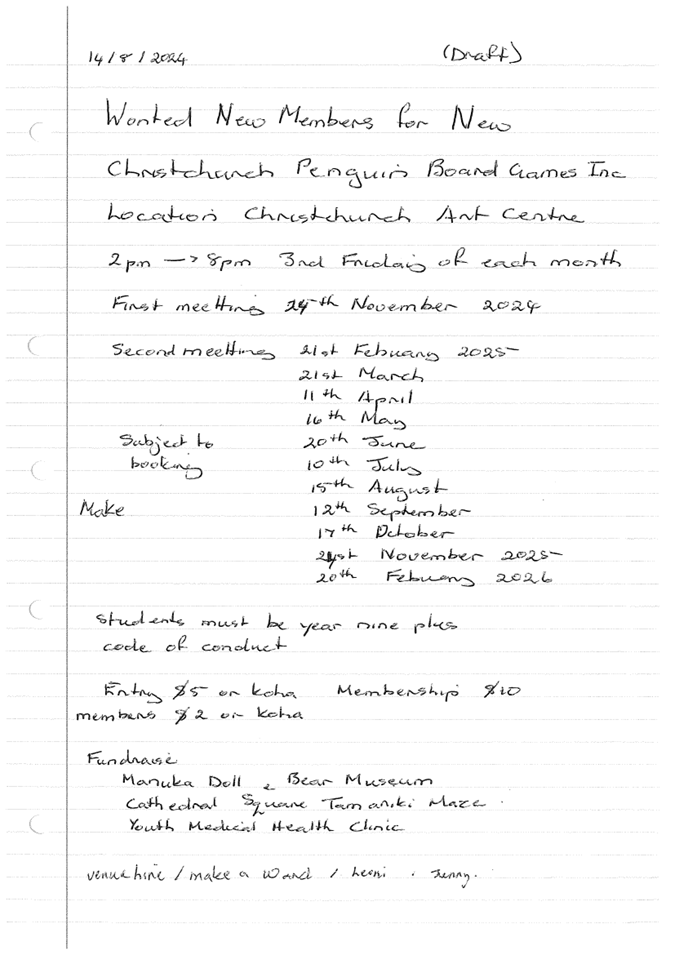 14/8/2024 (Draft)
Wanted New Members for New
Christchurch Penguin Board Games Inc
Location Christchurch Art Centre
2pm → 8pm 3rd Fridais of each month
First meetting 29th November 2024
Second meetting 21st Febuary 2025
21st March
11th April
16th May
Subject to 20th June
booking 10th July
15th August
Make 12th September
17th October
21st November 2025
20th Febuary 2026
Students must be year nine plus
code of conduct
Entry $5 or koha Membership $10
members $2 or koha
Fundraise
Manuka Doll & Bear Museum
Cathedral Square Tamariki Maze.
Youth Medical Health Clinic
venue hire / make a wand / . Jenny.